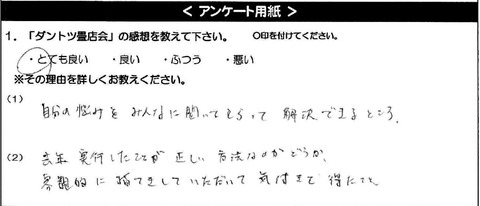 < アンケート用紙 >
1．「ダントツ畳店会」の感想を教えて下さい。　〇印を付けてください。
・とても良い　・良い　・ふつう　・悪い
※その理由を詳しくお教えください。
(1)
自分の悩みをみんなに聞いてもらって 解決できるところ。
(2) 去年 実行したことが 正しい方法なのかどうか、
客観的に指てきしていただいて 気付きを得たこと